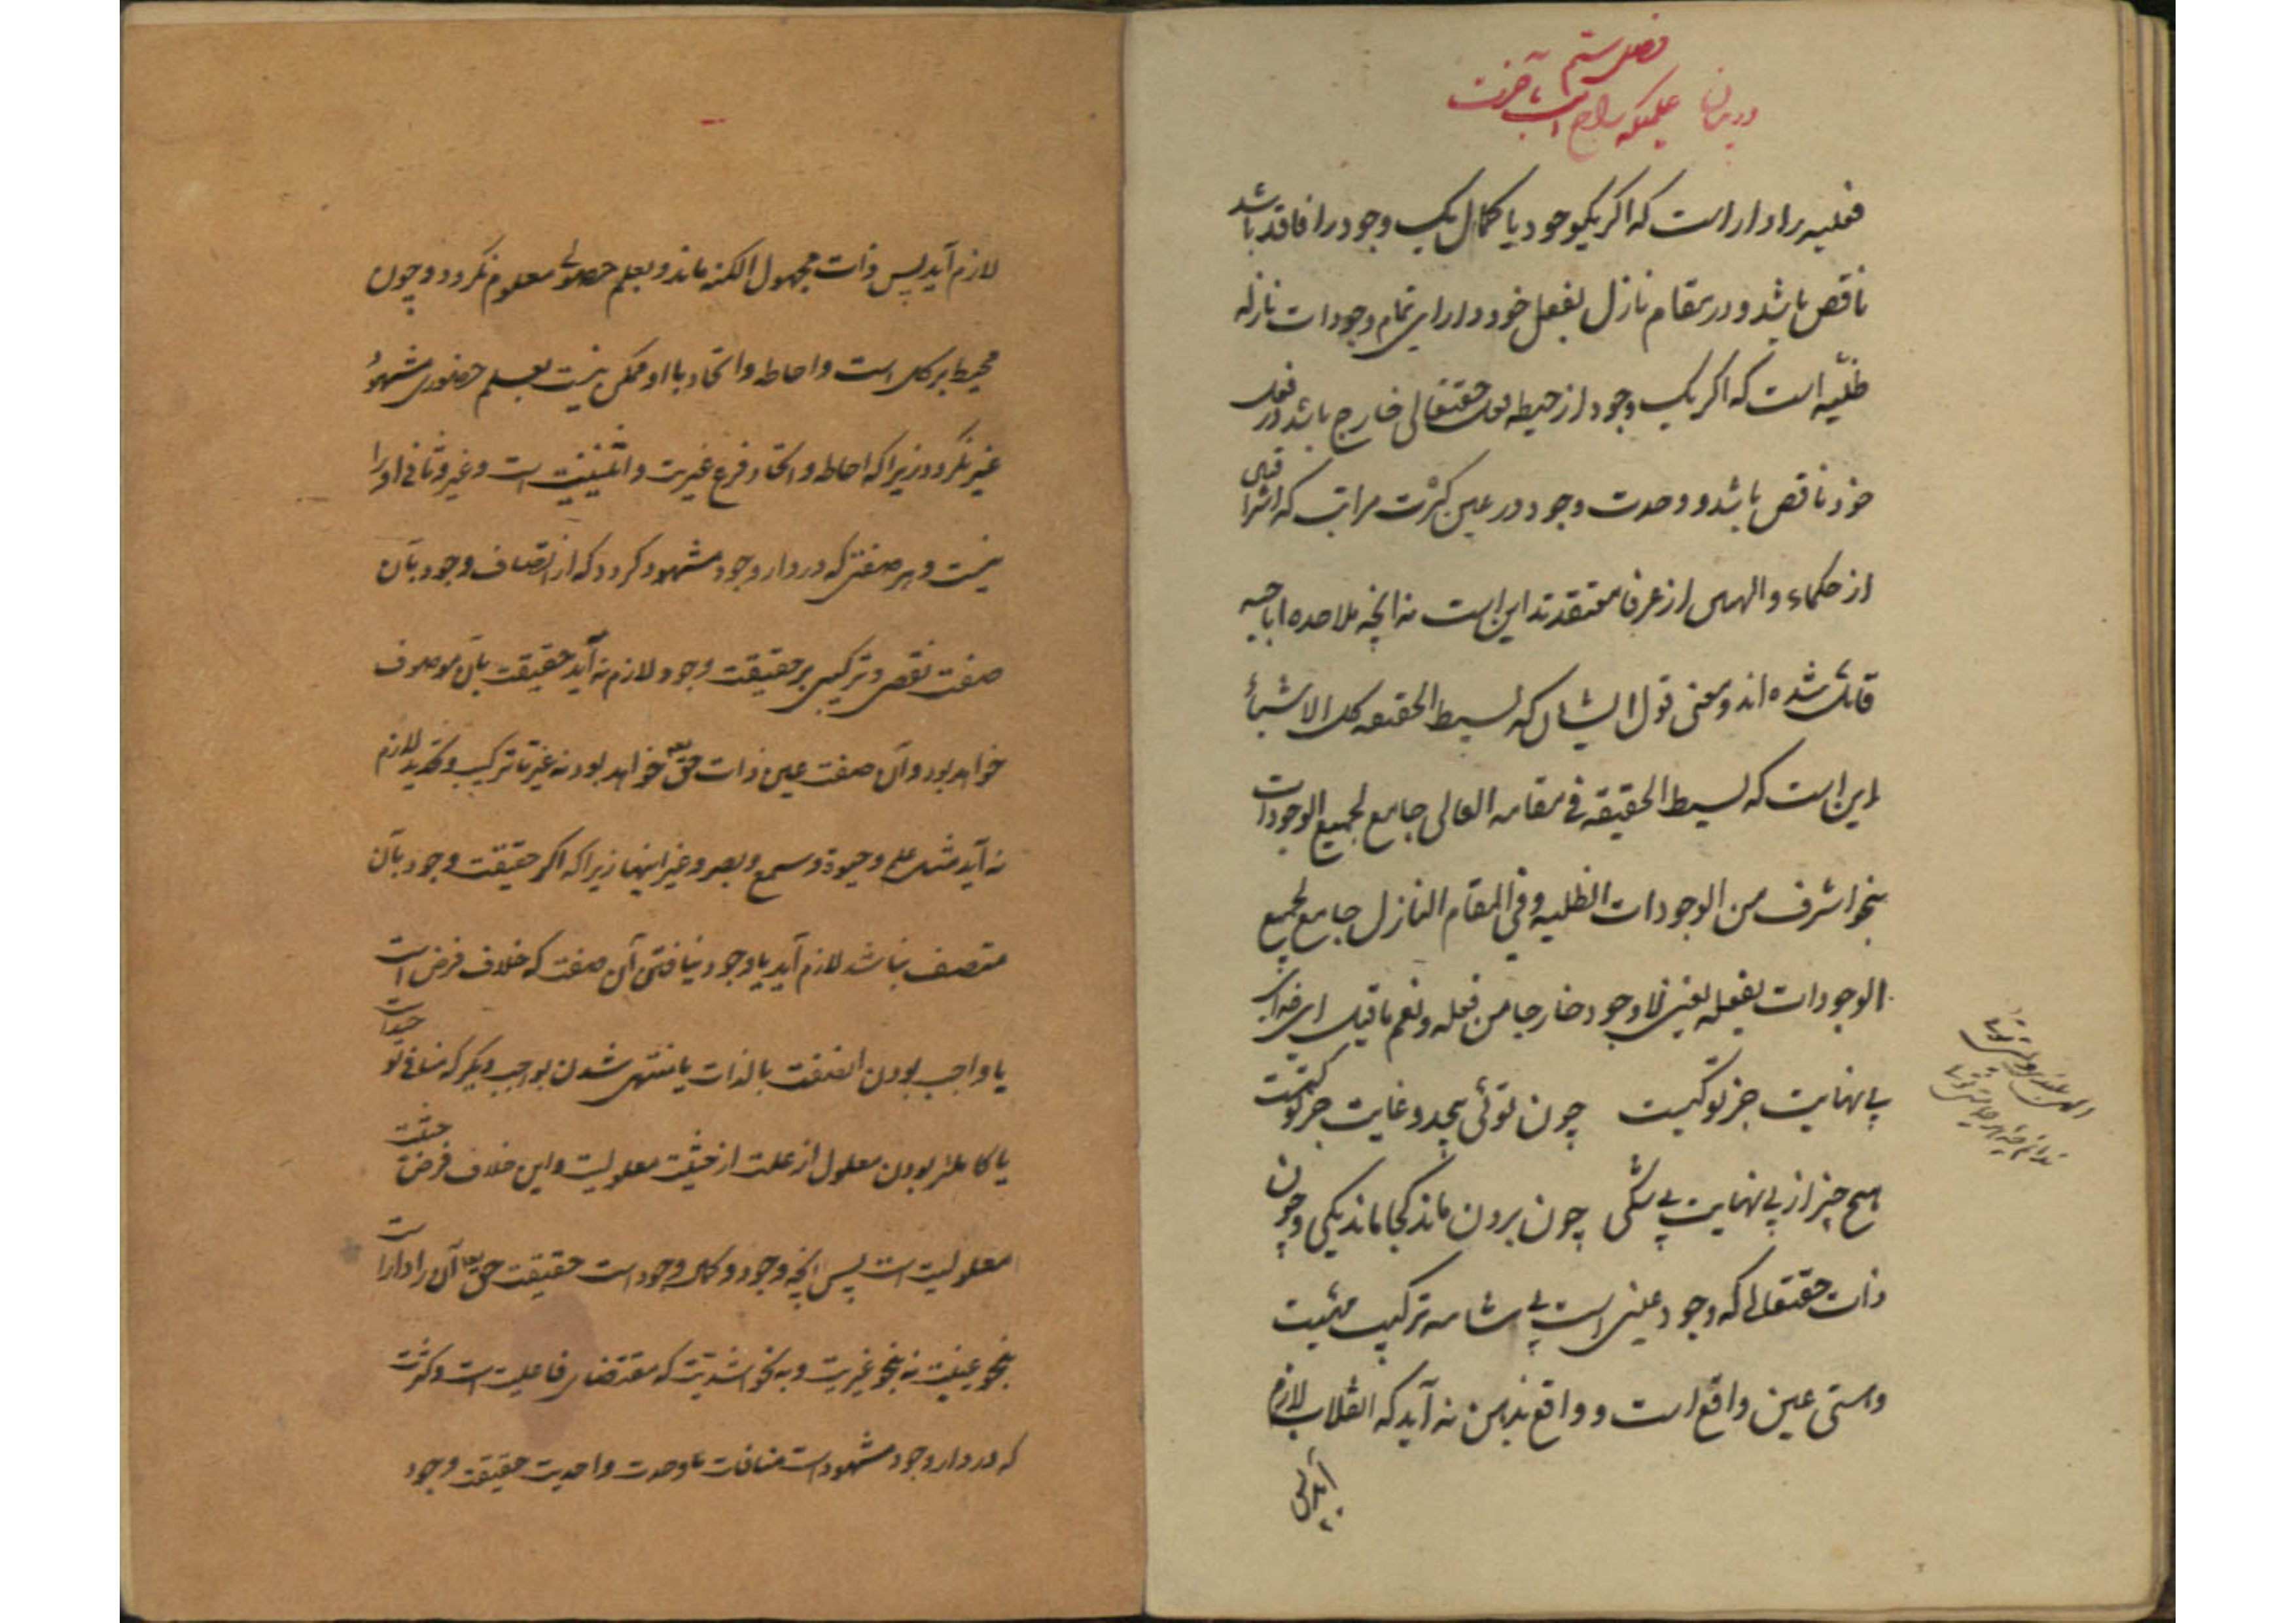 فصل ششم
در بیان علمیکه راجع است بآخرت
فعلیه را دار است که اگر یکوجود یا کمال یک وجود را فاقد باشد
ناقص باشد و در مقام نازل بفعل خود دارای تمام وجودات نازله
ظلیّه است که اگر یک وجود از حیطه فعل حقتعالی خارج باشد در فعل
خود ناقص باشد و وحدت وجود در عین کثرت مراتب که اشراقیین
از حکماء و الهیین از عرفا معتقدند این است نه انچه ملاحده اباحیه
قائل شده اند و معنی قول ایشان که بسیط الحقیقه کل الاشیاء
این است که بسیط الحقیقة فی مقامه العالی جامع لجمیع الوجودات
بنحو اشرف من الوجودات الظلیه و فی المقام النازل جامع لجمیع
الوجودات بفعله یعنی لا وجود خارجا من فعله و نعم ما قیل ای خدای
بی نهایت جز تو کیست چون توئی بیحد و غایت جز تو کیست
هیچ چیز از بی نهایت بی شکی چون برون ماند کجا ماند یکی و چون
ذات حقتعالی که وجود عینی است بی شائبه ترکیب مهیت
و هستی عین واقع است و واقع بذهن نه آید که انقلاب لازم
آید پس
لازم آید پس ذات مجهول الکنه ماند و بعلم حصولی معلوم نگردد و چون
محیط بر کل است و احاطه و اتحاد با او ممکن نیست بعلم حضوری مشهود
غیر نگردد زیرا که احاطه و اتحاد فرع غیریت و اثنینیت است و غیر و ثانی او را
نیست و هر صفتی که در دار وجود مشهود گردد که از اتصاف وجود بآن
صفت نقص و ترکیبی بر حقیقت وجود لازم نه آید حقیقت بآن موصوف
خواهد بود و آن صفت عین ذات حق تعالی خواهد بود نه غیر تا ترکیب و تحدید لازم
نه آید مثل علم و حیوة و سمع و بصر و غیر اینها زیرا که اگر حقیقت وجود بآن
متصف نباشد لازم آید یا وجود نیافتن آن صفت که خلاف فرض است
یا واجب بودن انصفت بالذات یا منتهی شدن بواجب دیگر که منافی توحید است
یا کاملتر بودن معلول از علت از حیثیت معلولیت و این خلاف فرض حیثیت
معلولیت است پس انچه وجود و کمال وجود است حقیقت حق تعالی آن را دارا است
بنحو عینیت نه بنحو غیریت و به نحو اشدیت که مقتضای فاعلیت است و کثرت
که در دار وجود مشهود است منافات با وحدت و احدیت حقیقت وجود